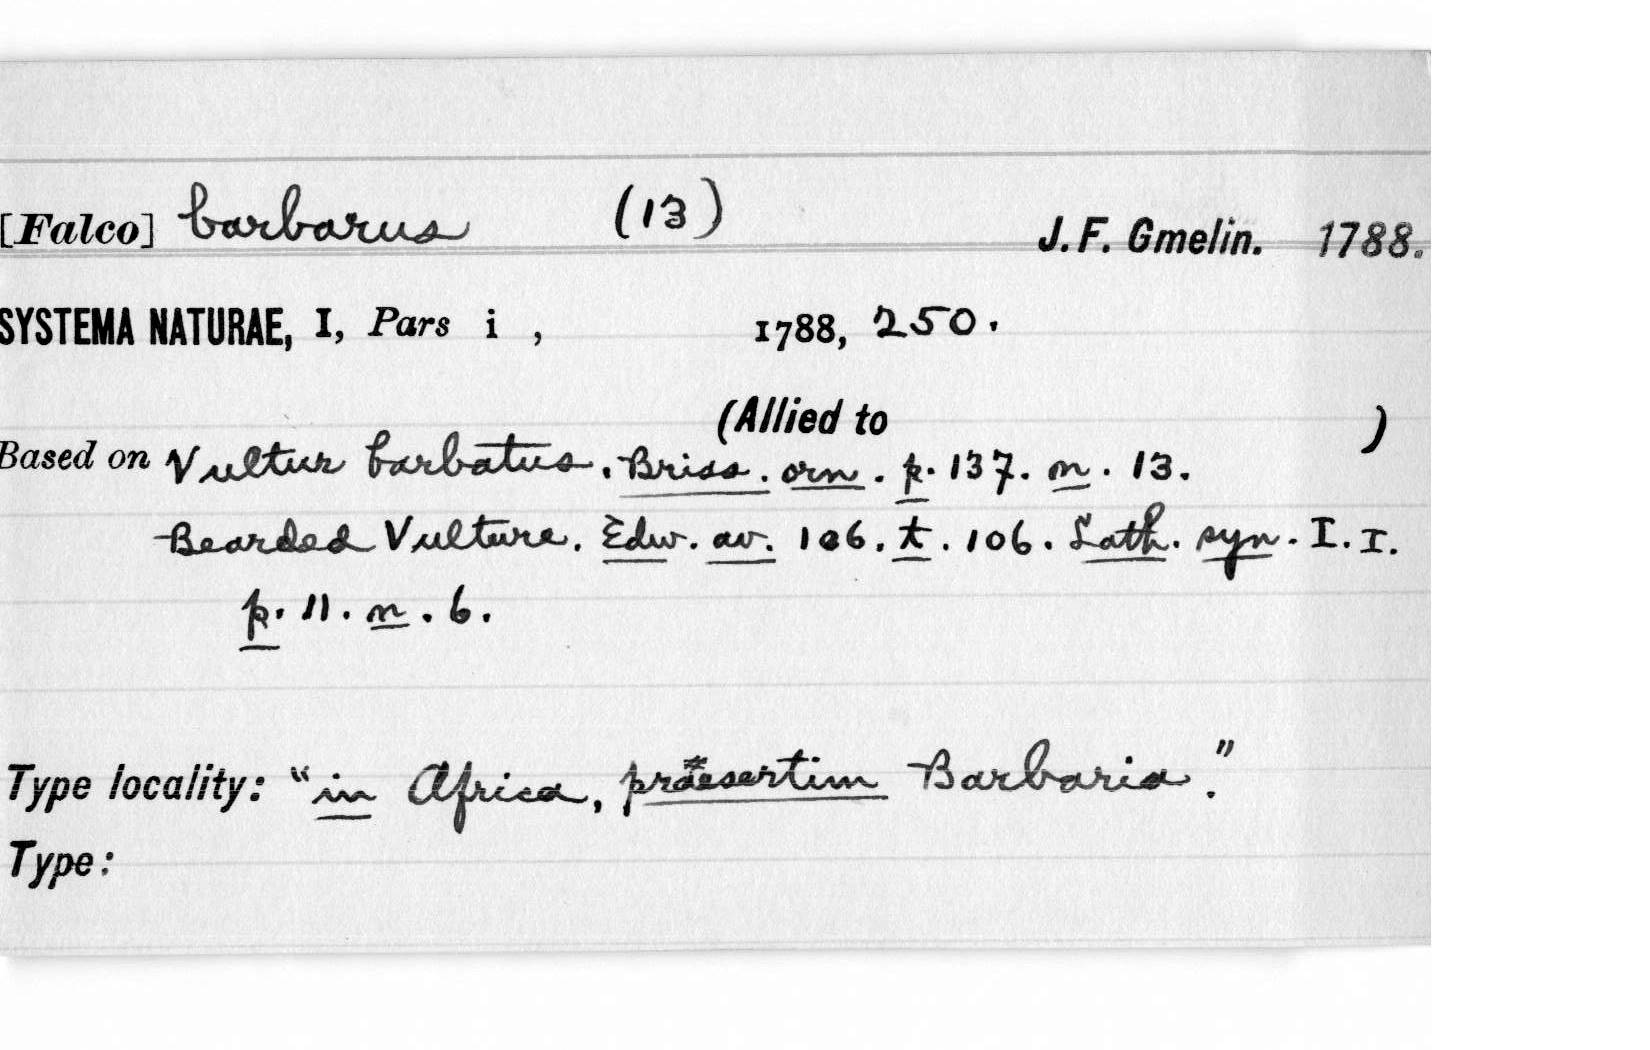 [Falco] barbarus (13) J. F. Gmelin. 1788.
SYSTEMA NATURAE, I, Pars i , 1788, 250.
(Allied to )
Based on Vultur barbatus. Briss. orn. p. 137. n. 13.
Bearded Vulture. Edw. av. 106. t. 106. Lath. syn. I. I.
p. 11. n. 6.
Type locality: "in Africa, praesertim Barbaria."
Type: